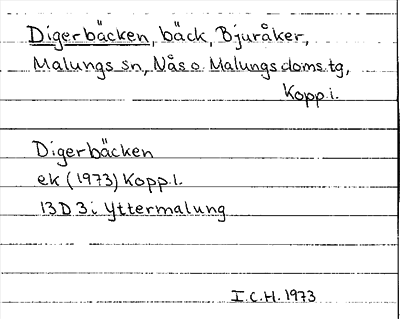 Digerbäcken, bäck, Bjuråker,
Malungs sn, Nås o. Malungs doms.tg,
Kopp.i.
Digerbäcken
ek (1973) Kopp.l.
13D 3i Yttermalung
I.C.H. 1973